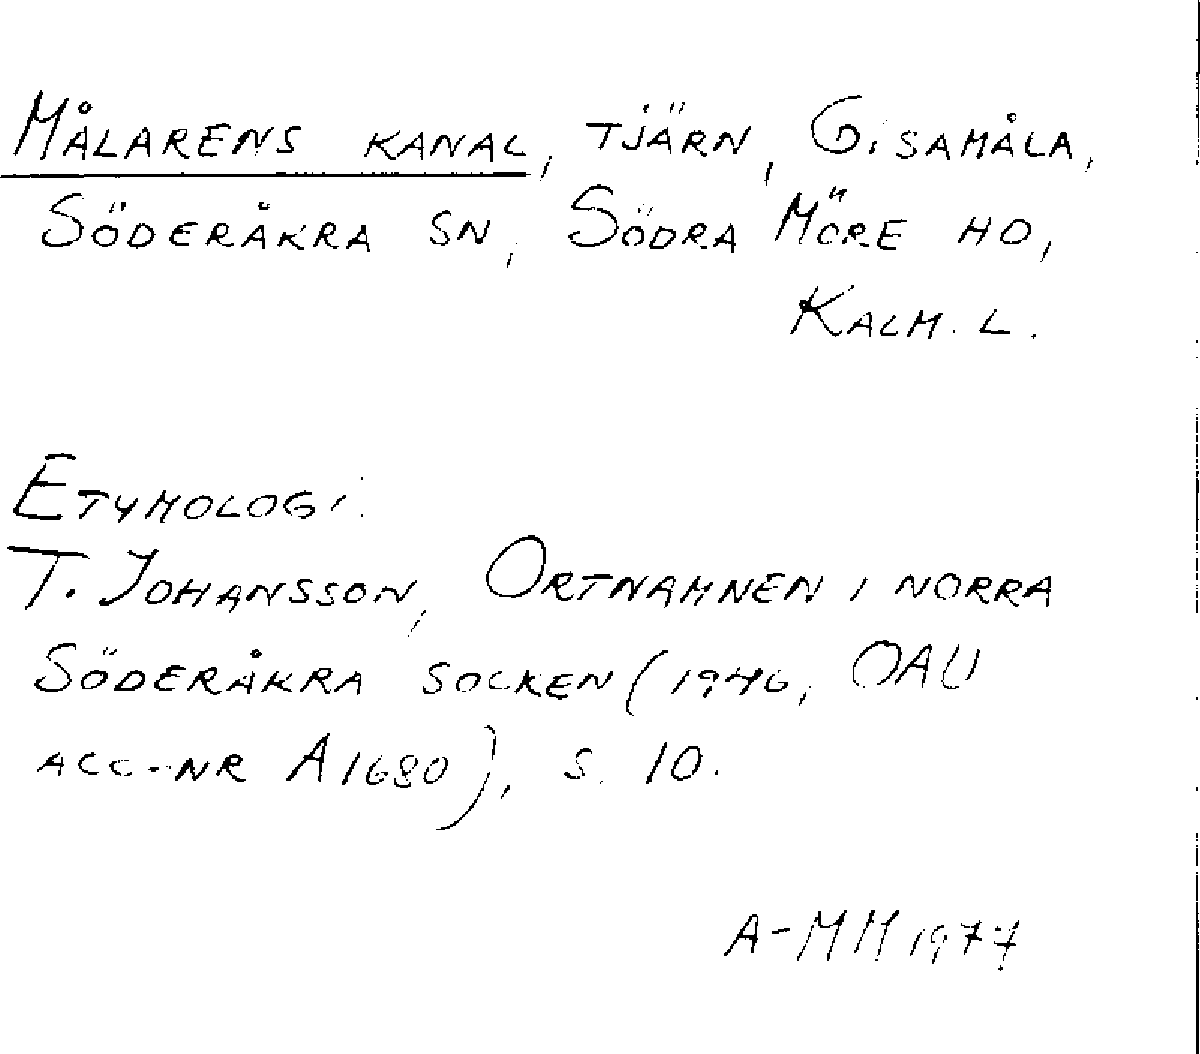 Målarens kanal, tjärn, Gisamåla,
Söderåkra sn, Södra Möre hd,
Kalm. l.
Etymologi:
T. Johansson, Ortnamnen i norra
Söderåkra socken (1946, OAU
acc-nr A1680), s. 10.
A-MM 1977